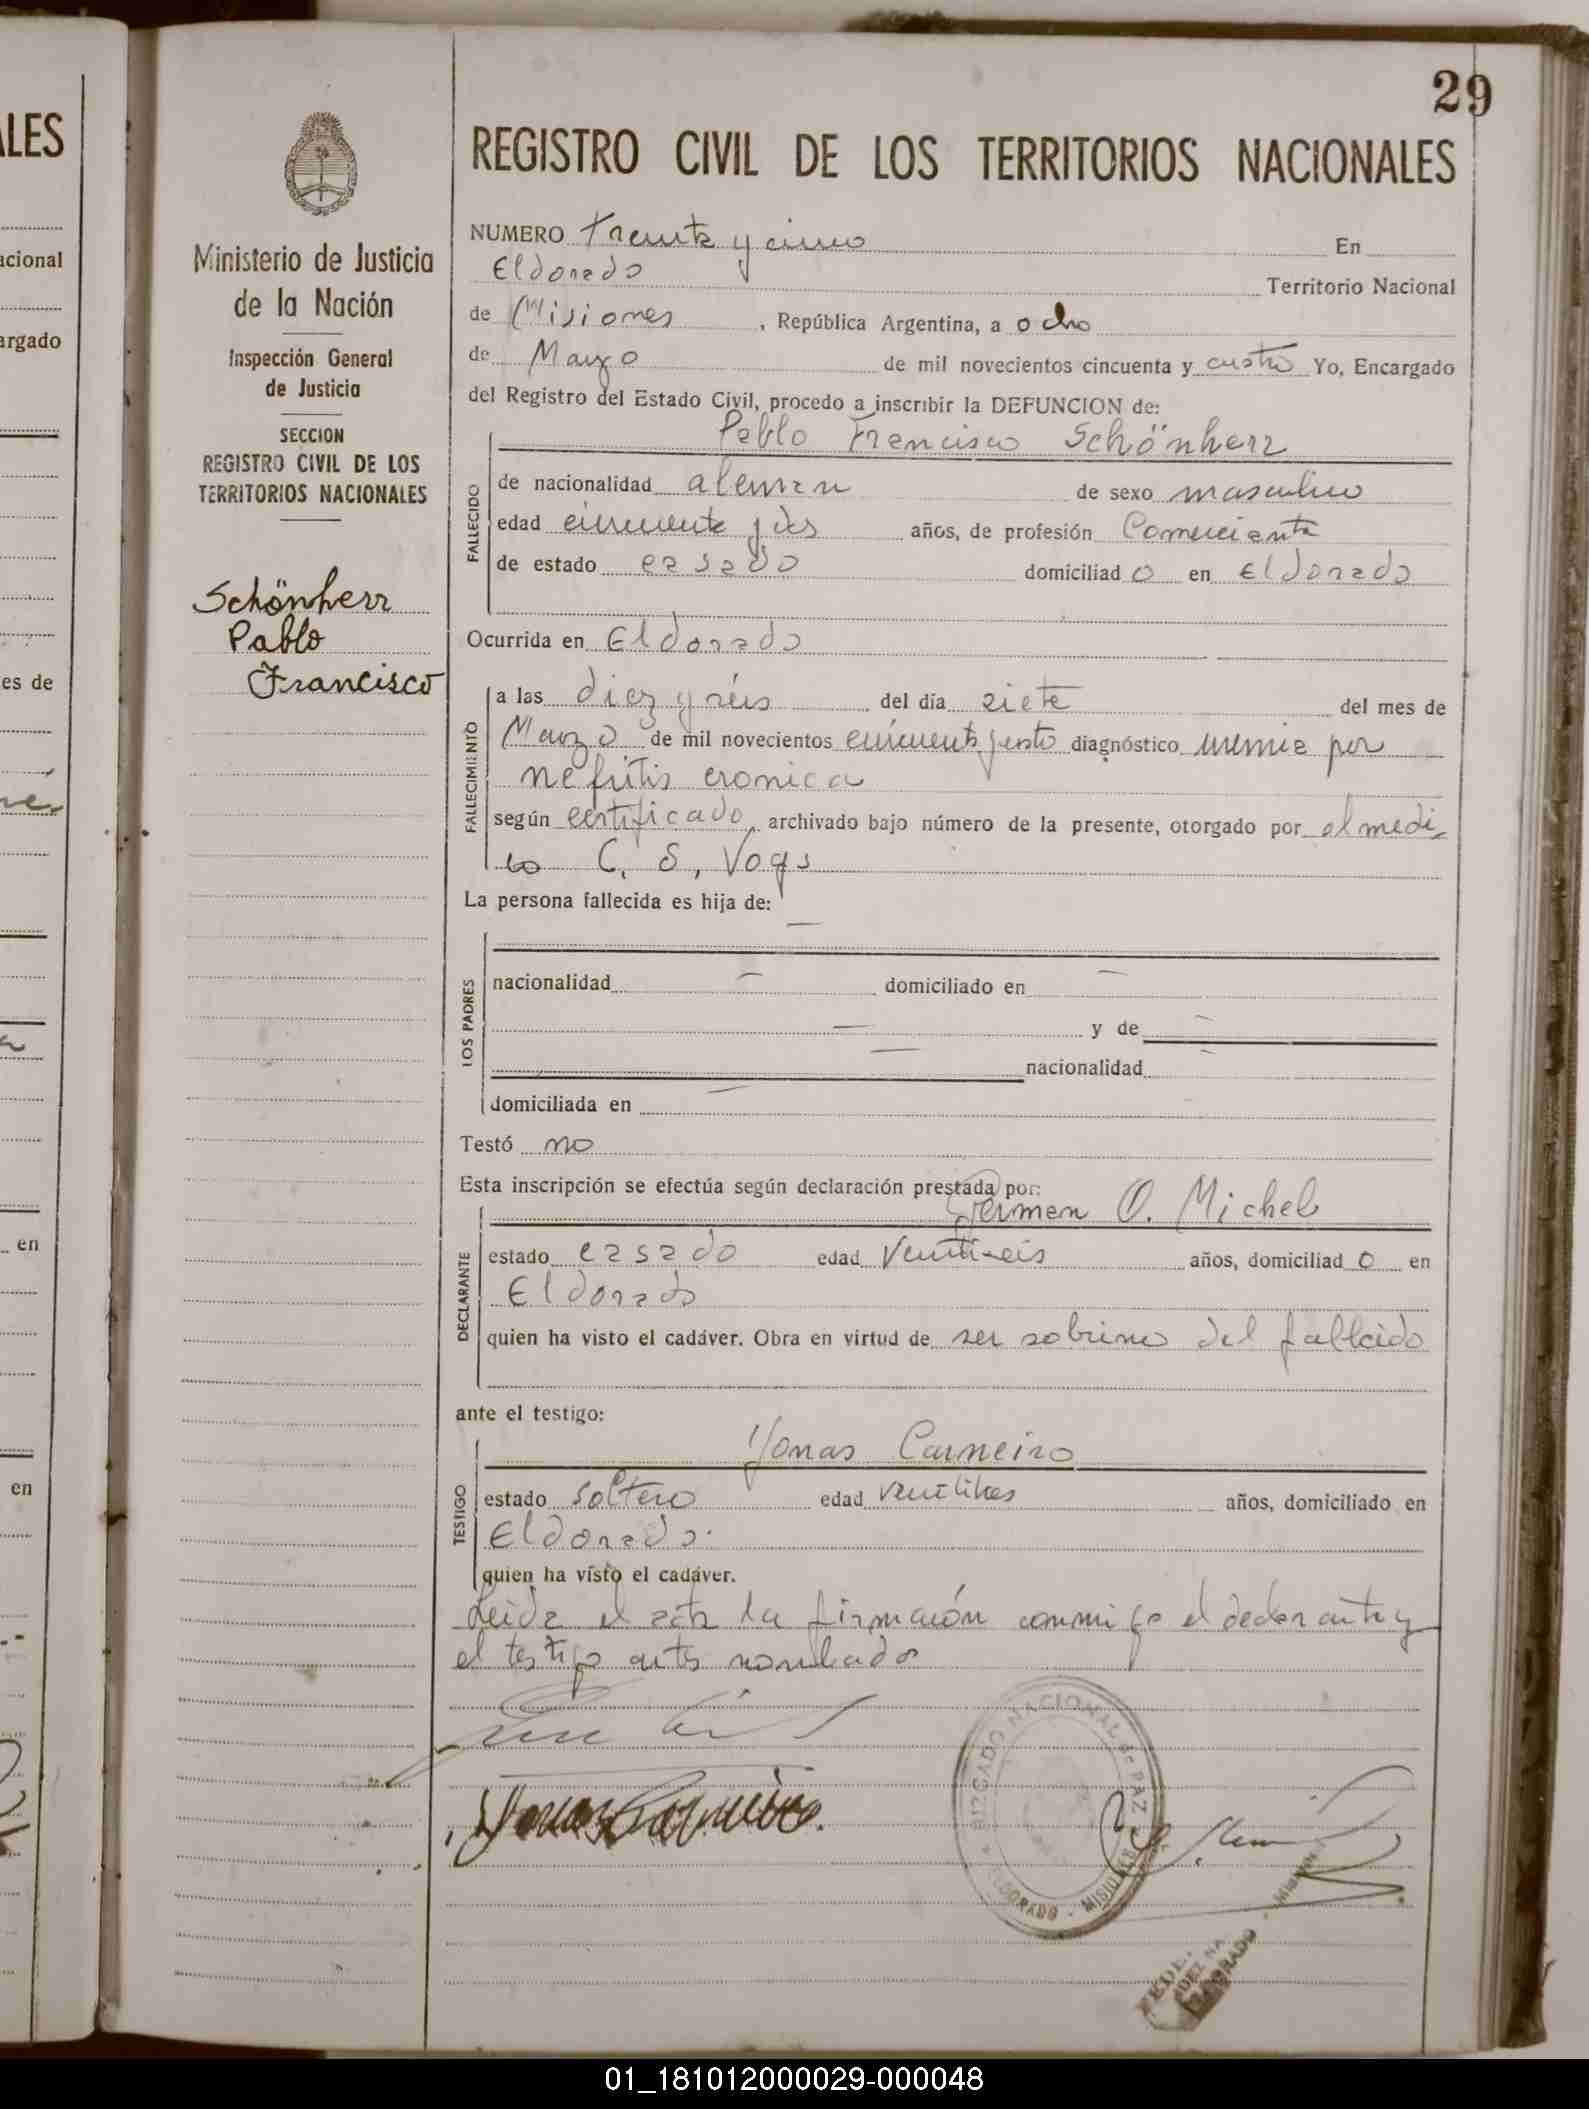 29
REGISTRO CIVIL DE LOS TERRITORIOS NACIONALES
Ministerio de Justicia
de la Nación
Inspección General
de Justicia
SECCION
REGISTRO CIVIL DE LOS
TERRITORIOS NACIONALES
Schönherr
Pablo
Francisco
NUMERO Treinta y cinco En
Eldorado Territorio Nacional
de Misiones, República Argentina, a ocho
de Marzo de mil novecientos cincuenta y cuatro Yo, Encargado
del Registro del Estado Civil, procedo a inscribir la DEFUNCION de:
Pablo Francisco Schönherr
FALLECIDO
de nacionalidad aleman de sexo masculino
edad cincuenta y años, de profesión Comerciante
de estado casado domiciliado en Eldorado
Ocurrida en Eldorado
FALLECIMIENTO
a las diez y seis del día siete del mes de
Marzo de mil novecientos cincuenta y cuatro diagnóstico uremia por
nefritis cronica
según certificado, archivado bajo número de la presente, otorgado por el medi
co C. S, Vogs
La persona fallecida es hija de: —
LOS PADRES
nacionalidad — domiciliado en —
— y de —
— nacionalidad —
domiciliada en —
Testó no
Esta inscripción se efectúa según declaración prestada por:
German O. Michel
DECLARANTE
estado casado edad Ventiseis años, domiciliado en
Eldorado
quien ha visto el cadáver. Obra en virtud de ser sobrino del fallecido
ante el testigo:
Yonas Carneiro
TESTIGO
estado soltero edad años, domiciliado en
Eldorado.
quien ha visto el cadáver.
Leida el acta la firmación conmigo el declarante y
el testigo antes nombrado
Yonas Carneiro.
JUZGADO NACIONAL de PAZ
ELDORADO - MISIONES
ELDORADO - Misiones
ALES
acional
argado
es de
en
en
01_181012000029-000048